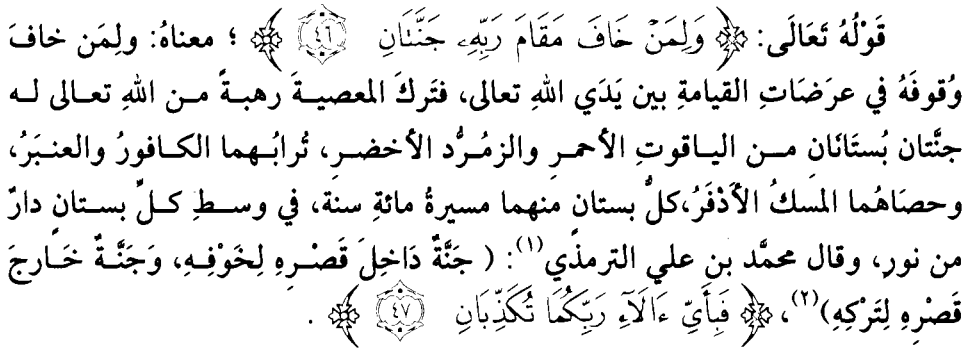 قَوْلُهُ تَعَالَى: ﴿ وَلِمَنْ خَافَ مَقَامَ رَبِّهِۦ جَنَّتَانِ ٤٦ ﴾ ؛ معناهُ: ولِمَن خافَ
وُقوفَهُ في عرَضَاتِ القيامةِ بين يَدَي اللهِ تعالى، فتَركَ المعصيـةَ رهبـةً مـن اللهِ تعـالى لـه
جنَّتان بُستَانَانِ مـن اليـاقوتِ الأحمـرِ والزمُـرُّد الأخضـرِ، تُرابُـهما الكـافورُ والعنـبَرُ،
وحصَاهُما المسكُ الأَذْفَرُ،كلُّ بستان منهما مسيرةُ مائةِ سنة، في وسـطِ كـلِّ بسـتانٍ دارٌ
من نورٍ، وقال محمَّد بن علي الترمذي(١): ( جَنَّةٌ دَاخِلَ قَصْـرِهِ لِخَوْفِـهِ، وَجَنَّـةٌ خَـارِجَ
قَصْرِهِ لِتَرْكِهِ)(٢)، ﴿ فَبِأَيِّ ءَالَآءِ رَبِّكُمَا تُكَذِّبَانِ ٤٧ ﴾ .